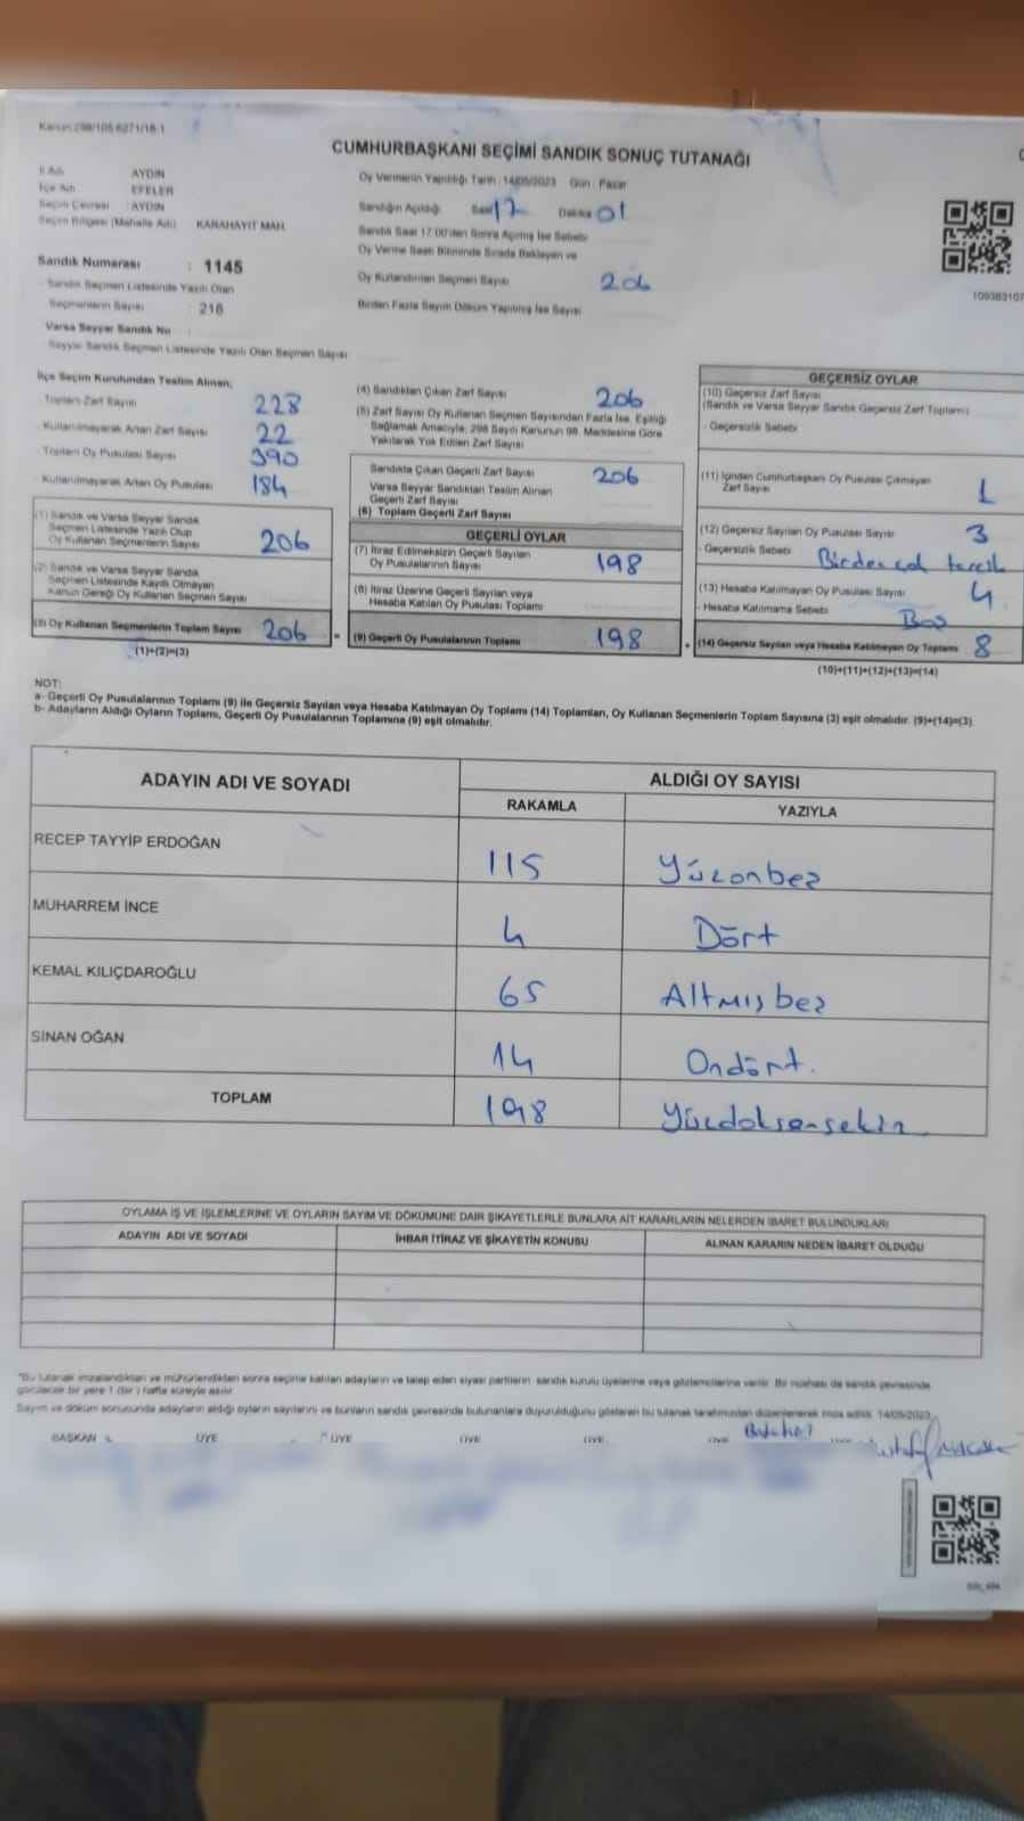 Kanun:298/105 6271/18-1
CUMHURBAŞKANI SEÇİMİ SANDIK SONUÇ TUTANAĞI
İl Adı AYDIN
İlçe Adı EFELER
Seçim Çevresi : AYDIN
Seçim Bölgesi (Mahalle Adı) KARAHAYIT MAH.
Sandık Numarası : 1145
Sandık Seçmen Listesinde Yazılı Olan
Seçmenlerin Sayısı : 218
Varsa Seyyar Sandık No
Seyyar Sandık Seçmen Listesinde Yazılı Olan Seçmen Sayısı
Oy Vermenin Yapıldığı Tarih : 14/05/2023 Gün : Pazar
Sandığın Açıldığı Saat 17 Dakika 01
Sandık Saat 17.00'den Sonra Açılmış İse Sebebi
Oy Verme Saati Bitiminde Sırada Bekleyen ve
Oy Kullandırılan Seçmen Sayısı 206
Birden Fazla Sayım Döküm Yapılmış İse Sayısı
İlçe Seçim Kurulundan Teslim Alınan;
Toplam Zarf Sayısı 228
Kullanılmayarak Artan Zarf Sayısı 22
Toplam Oy Pusulası Sayısı 390
Kullanılmayarak Artan Oy Pusulası 184
(1) Sandık ve Varsa Seyyar Sandık
Seçmen Listesinde Yazılı Olup
Oy Kullanan Seçmenlerin Sayısı 206
(2) Sandık ve Varsa Seyyar Sandık
Seçmen Listesinde Kayıtlı Olmayan
Kanun Gereği Oy Kullanan Seçmen Sayısı
(3) Oy Kullanan Seçmenlerin Toplam Sayısı 206
(1)+(2)=(3)
(4) Sandıktan Çıkan Zarf Sayısı 206
(5) Zarf Sayısı Oy Kullanan Seçmen Sayısından Fazla İse, Eşitliği
Sağlamak Amacıyla, 298 Sayılı Kanunun 98. Maddesine Göre
Yakılarak Yok Edilen Zarf Sayısı
Sandıkta Çıkan Geçerli Zarf Sayısı 206
Varsa Seyyar Sandıktan Teslim Alınan
Geçerli Zarf Sayısı
(6) Toplam Geçerli Zarf Sayısı
GEÇERLİ OYLAR
(7) İtiraz Edilmeksizin Geçerli Sayılan
Oy Pusulalarının Sayısı 198
(8) İtiraz Üzerine Geçerli Sayılan veya
Hesaba Katılan Oy Pusulası Toplamı
(9) Geçerli Oy Pusulalarının Toplamı 198
GEÇERSİZ OYLAR
(10) Geçersiz Zarf Sayısı
(Sandık ve Varsa Seyyar Sandık Geçersiz Zarf Toplamı)
- Geçersizlik Sebebi
(11) İçinden Cumhurbaşkanı Oy Pusulası Çıkmayan
Zarf Sayısı 1
(12) Geçersiz Sayılan Oy Pusulası Sayısı 3
- Geçersizlik Sebebi Birden çok tercih
(13) Hesaba Katılmayan Oy Pusulası Sayısı 4
- Hesaba Katılmama Sebebi Boş
(14) Geçersiz Sayılan veya Hesaba Katılmayan Oy Toplamı 8
(10)+(11)+(12)+(13)=(14)
NOT:
a- Geçerli Oy Pusulalarının Toplamı (9) ile Geçersiz Sayılan veya Hesaba Katılmayan Oy Toplamı (14) Toplamları, Oy Kullanan Seçmenlerin Toplam Sayısına (3) eşit olmalıdır. (9)+(14)=(3)
b- Adayların Aldığı Oyların Toplamı, Geçerli Oy Pusulalarının Toplamına (9) eşit olmalıdır.
ADAYIN ADI VE SOYADI ALDIĞI OY SAYISI
RAKAMLA YAZIYLA
RECEP TAYYİP ERDOĞAN 115 Yüzonbeş
MUHARREM İNCE 4 Dört
KEMAL KILIÇDAROĞLU 65 Altmışbeş
SİNAN OĞAN 14 Ondört.
TOPLAM 198 Yüzdoksansekiz
OYLAMA İŞ VE İŞLEMLERİNE VE OYLARIN SAYIM VE DÖKÜMÜNE DAİR ŞİKAYETLERLE BUNLARA AİT KARARLARIN NELERDEN İBARET BULUNDUKLARI
ADAYIN ADI VE SOYADI İHBAR İTİRAZ VE ŞİKAYETİN KONUSU ALINAN KARARIN NEDEN İBARET OLDUĞU
*Bu tutanak imzalandıktan ve mühürlendikten sonra seçime katılan adayların ve talep eden siyasi partilerin sandık kurulu üyelerine veya gözlemcilerine verilir. Bir nüshası da sandık çevresinde
görülecek bir yere 1 (bir) hafta süreyle asılır.
Sayım ve döküm sonucunda adayların aldığı oyların sayılarını ve bunların sandık çevresinde bulunanlara duyurulduğunu gösteren bu tutanak tarafımızdan düzenlenerek imza edildi. 14/05/2023
BAŞKAN ÜYE ÜYE ÜYE ÜYE ÜYE